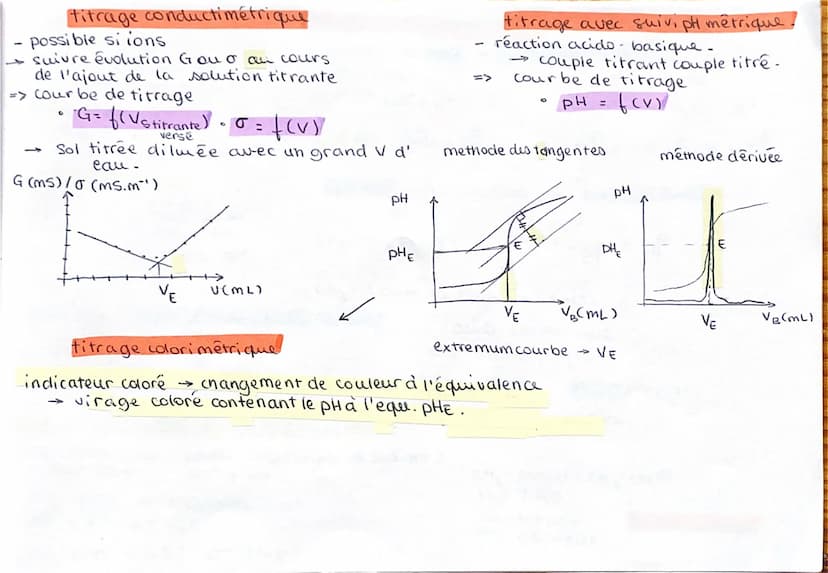 titrage conductimétrique
- possible si ions
→ suivre évolution G ou σ au cours
de l'ajout de la solution titrante
=> courbe de titrage
• G = f(V s titrante) • σ = f(V)
versé
→ sol titrée diluée avec un grand V d'
eau.
G (mS) / σ (mS.m⁻¹)
VE V(mL)
titrage avec suivi pH métrique.
- réaction acido-basique.
→ couple titrant couple titré.
=> courbe de titrage
• pH = f(V)
methode des tangentes
pH
pHE
E
VE VB(mL)
méthode dérivée
pH
pHE
E
VE VB(mL)
extremum courbe → VE
titrage colorimétrique
indicateur coloré → changement de couleur à l'équivalence
→ virage coloré contenant le pH à l'equ. pHE.